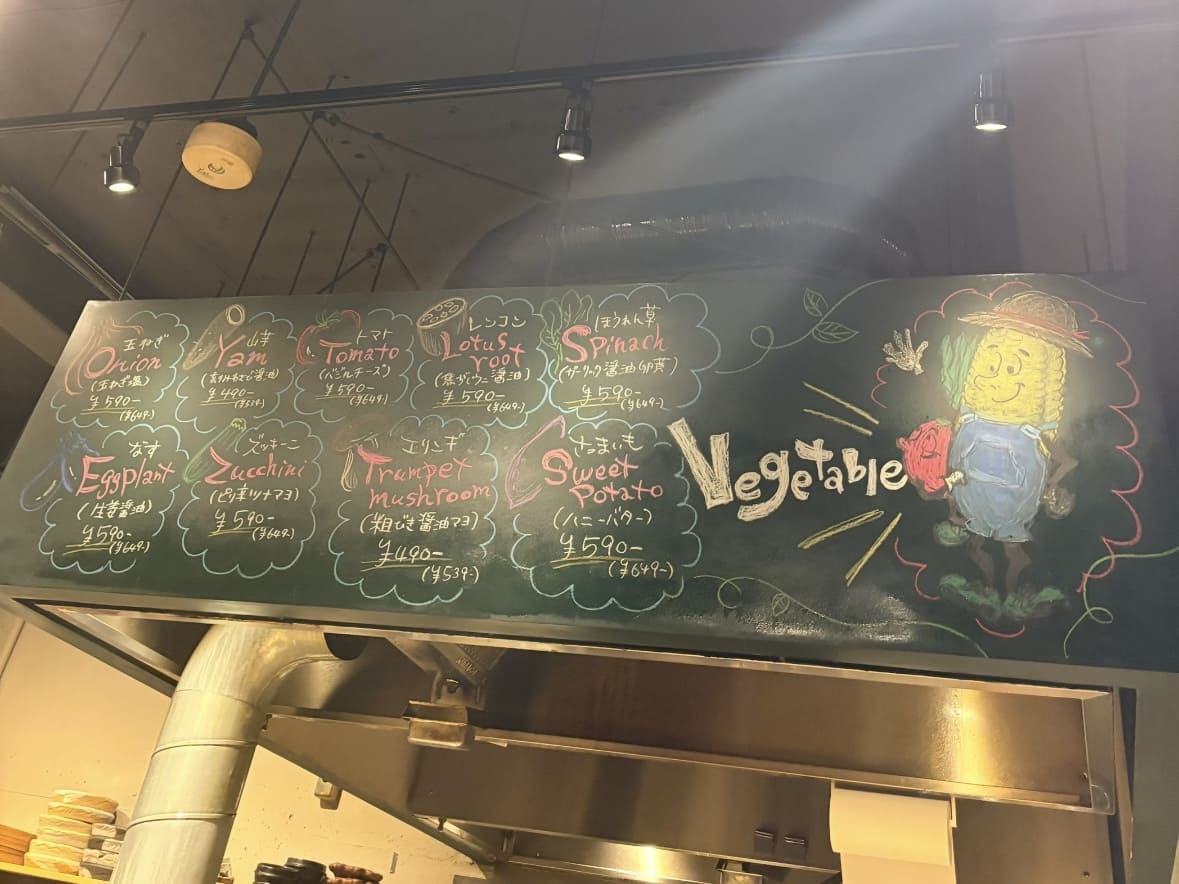 玉ねぎ
Onion
(玉ねぎ塩)
¥590-
(¥649-)
山芋
Yam
(青のりわさび醤油)
¥490-
(¥539-)
トマト
Tomato
(バジルチーズ)
¥590-
(¥649-)
レンコン
Lotus
root
(焦がしウニ醤油)
¥590-
(¥649-)
ほうれん草
Spinach
(ガーリック醤油卵黄)
¥590-
(¥649-)
なす
Eggplant
(生姜醤油)
¥590-
(¥649-)
ズッキーニ
Zucchini
(ピリ辛ツナマヨ)
¥590-
(¥649-)
エリンギ
Trumpet
mushroom
(粗びき醤油マヨ)
¥490-
(¥539-)
さつまいも
Sweet
Potato
(ハニーバター)
¥590-
(¥649-)
Vegetable